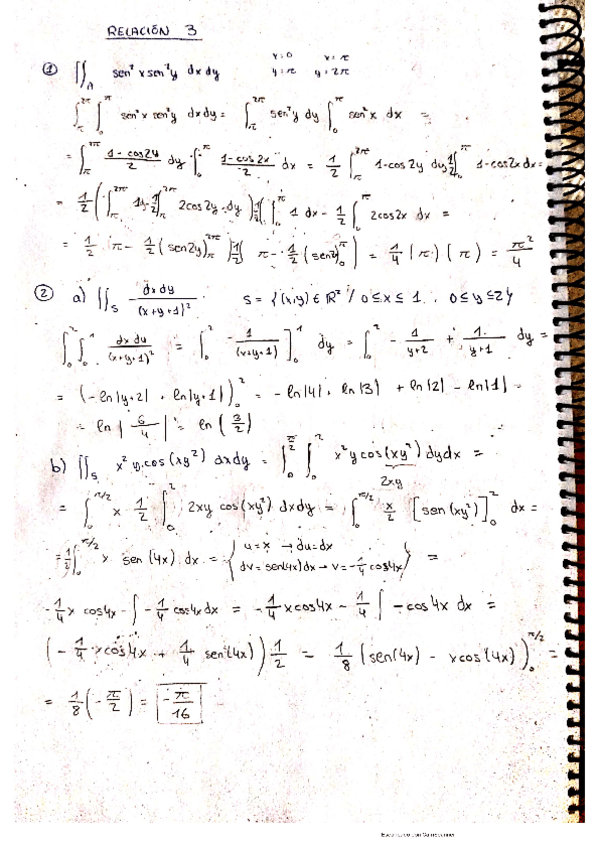 RELACIÓN 3
① ∬_A sen²x sen²y dx dy    x=0  x=π
y=π  y=2π
∫_π^{2π} ∫_0^π sen²x sen²y dx dy = ∫_π^{2π} sen²y dy ∫_0^π sen²x dx =
= ∫_π^{2π} (1-cos2y)/2 dy · ∫_0^π (1-cos2x)/2 dx = 1/2 ∫_π^{2π} 1-cos2y dy 1/2 ∫_0^π 1-cos2x dx =
= 1/2 ( ∫_π^{2π} 1dy - 1/2 ∫_π^{2π} 2cos2y dy ) 1/2 ( ∫_0^π 1 dx - 1/2 ∫_0^π 2cos2x dx =
= 1/2 ( π - 1/2 (sen2y)_π^{2π} ) 1/2 ( π - 1/2 (sen2x)_0^π ) = 1/4 (π) (π) = π²/4
② a) ∬_S dx dy/(x+y+1)²    S = {(x,y) ∈ ℝ² / 0≤x≤1, 0≤y≤2}
∫_0^2 ∫_0^1 dx dy/(x+y+1)² = ∫_0^2 - 1/(x+y+1) ]_0^1 dy = ∫_0^2 - 1/(y+2) + 1/(y+1) dy =
= (-ln|y+2| + ln|y+1|)_0^2 = -ln|4| + ln|3| + ln|2| - ln|1| =
= ln|6/4| = ln(3/2)
b) ∬_S x² y cos(xy²) dx dy = ∫_0^{π/2} ∫_0^2 x² y cos(xy²) dy dx =
2xy
= ∫_0^{π/2} x · 1/2 ∫_0^2 2xy cos(xy²) dx dy = ∫_0^{π/2} x/2 [sen(xy²)]_0^2 dx =
= 1/2 ∫_0^{π/2} x sen(4x) dx = { u=x → du=dx
dv = sen(4x)dx → v = -1/4 cos4x } =
-1/4 x cos4x - ∫ -1/4 cos4x dx = -1/4 x cos4x - 1/4 ∫ -cos4x dx =
( -1/4 x cos4x + 1/4 sen(4x) ) 1/2 = 1/8 (sen(4x) - x cos(4x))_0^{π/2} =
= 1/8 (-π/2) = -π/16